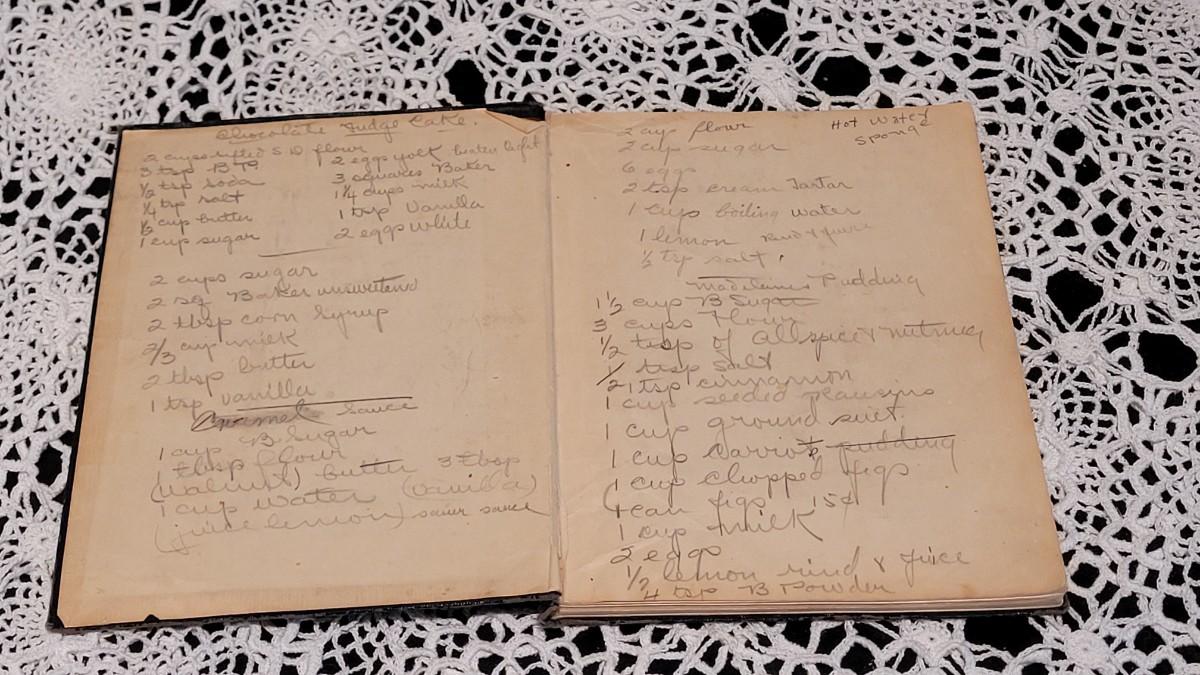 Chocolate Fudge Cake.
2 cups sifted S D flour
3 tsp B P
½ tsp soda
¼ tsp salt
½ cup butter
1 cup sugar
2 eggs yolk beaten light
3 squares Baker
1¼ cups milk
1 tsp Vanilla
2 eggs white
2 cups sugar
2 sq Baker unsweetend
2 tbsp corn syrup
2/3 cup milk
2 tbsp butter
1 tsp vanilla
Caramel Sauce
1 cup B. Sugar
1 tbsp flour
(walnut) butter 3 tbsp
1 cup water (vanilla)
(juice lemon) sauce
Hot Water
Sponge
2 cup flour
2 cup sugar
6 eggs
2 tsp cream Tartar
1 cups boiling water
1 lemon rind & juice
½ tsp salt
Pudding
1½ cup B Sugar
3 cups Flour
½ tsp of allspice & nutmeg
½ tsp Salt
1 tsp cinnamon
1 cup seeded
1 cup ground suet
1 cup carrot pudding
1 cup chopped figs
(can figs 15¢
1 cup milk
2 eggs
½ lemon rind & juice
4 tsp B Powder